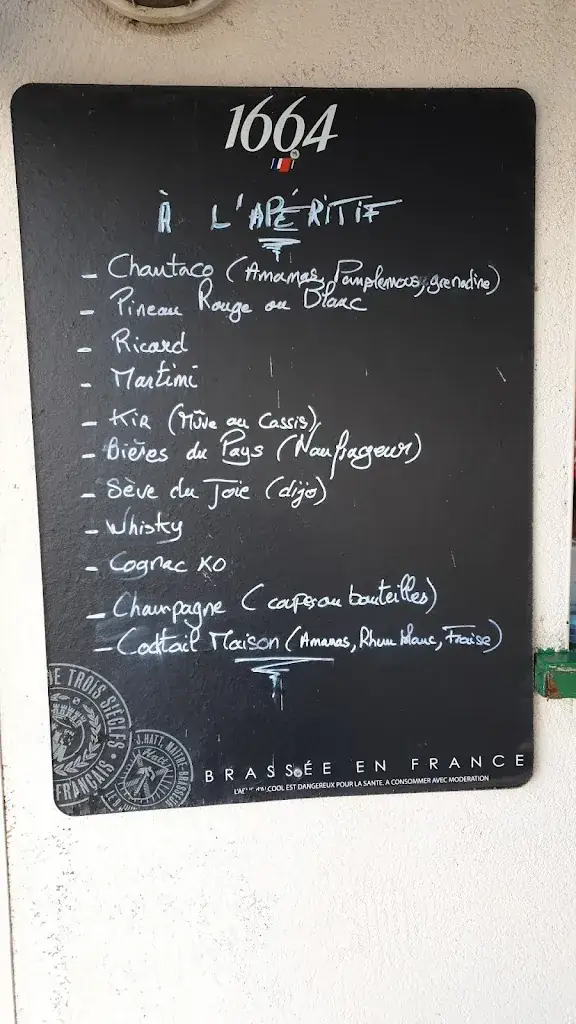 1664
À L'APÉRITIF
- Chantaco (Ananas, Pamplemous, grenadine)
- Pineau Rouge ou Blanc
- Ricard
- Martini
- KIR (Mûre ou Cassis)
- Bières du Pays (Naufrageur)
- Sève du Joie (dijo)
- Whisky
- Cognac XO
- Champagne (coupes ou bouteilles)
- Cocktail Maison (Ananas, Rhum blanc, Fraise)
DE TROIS SIÈCLES
FRANÇAIS
J.HATT, MAITRE-BRASSEUR
Hatt
BRASSÉE EN FRANCE
L'ABUS D'ALCOOL EST DANGEREUX POUR LA SANTE. A CONSOMMER AVEC MODERATION